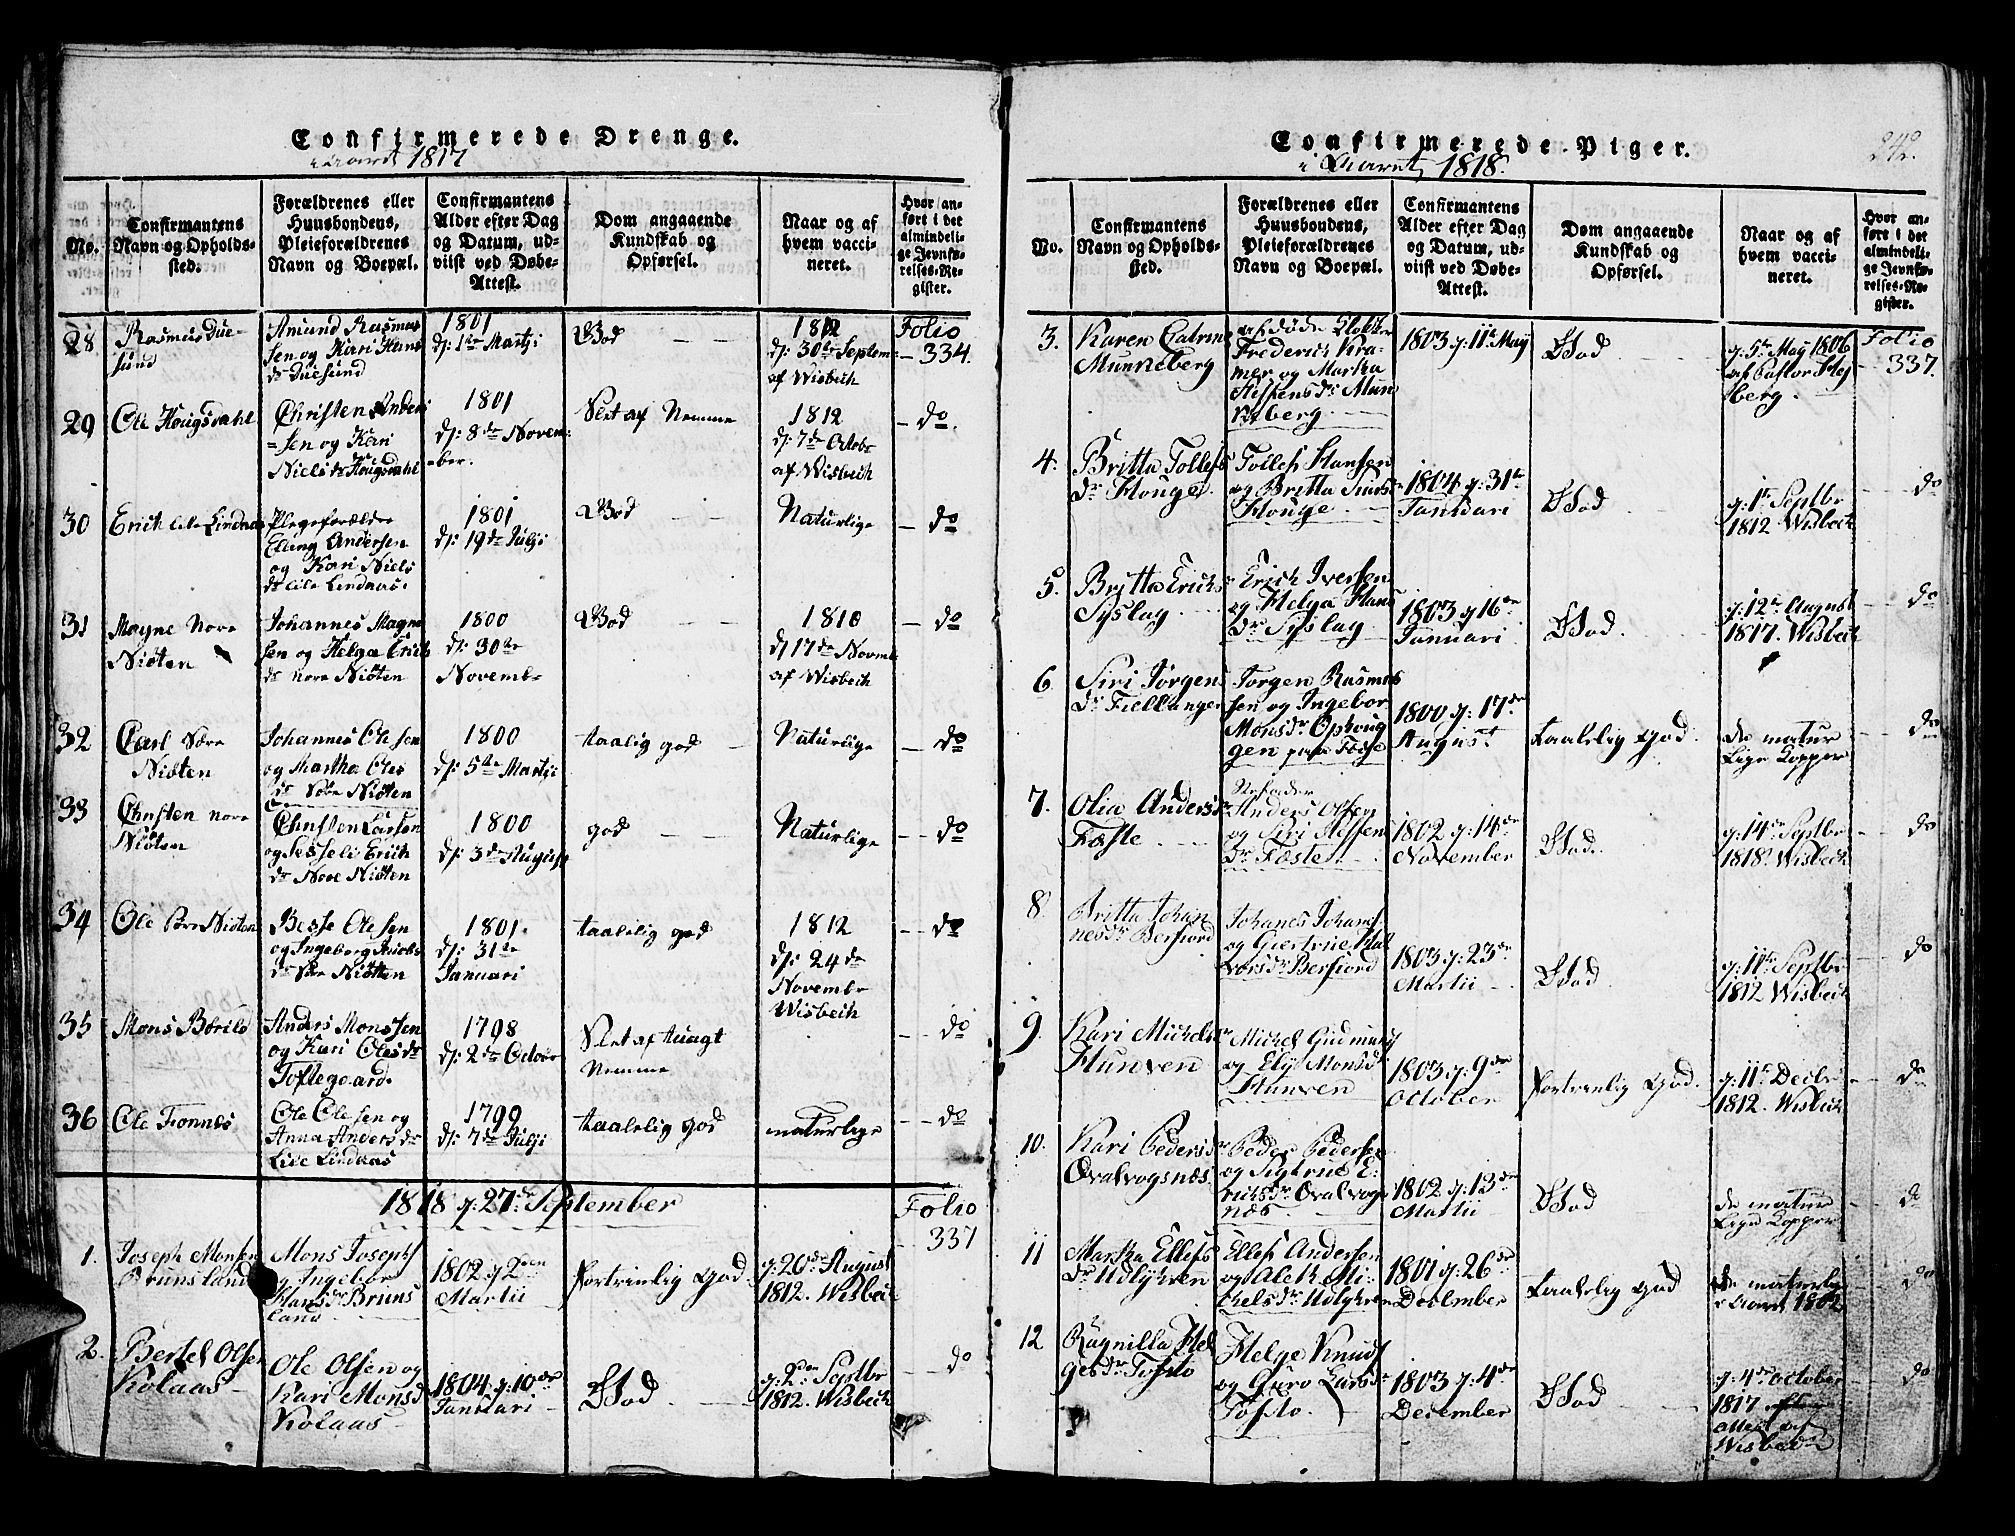 Confirmerede Drenge.
i Aaret 1817
No.
Confirmantens
Navn og Opholds-
sted.
Forældrenes eller
Huusbondens,
Pleieforældrenes
Navn og Boepæl.
Confirmantens
Alder efter Dag
og Datum, ud-
viist ved Døbe-
Attest.
Dom angaaende
Kundskab og
Opførsel.
Naar og af
hvem vacci-
neret.
Hvor an-
ført i det
almindeli-
ge Jevnfø-
relses-Re-
gister.
28
Rasmus Due-
sund
Amund Rasmus
sen og Kari Hans
dr Duesund
1801
d: 1te Martji
God
1812
d: 30te Septem
af Wisbech
Folio
334.
29
Ole Hougsdahl
Christen Anders
=sen og Kari
Niels dr Hougsdahl
1801
d: 8de Novem-
ber.
Slet af Nemme
1812
d: 7de Octobr
af Wisbech
do.
30
Erich lile Lindaas
Plegeforældre
Elling Andersen
og Kari Niels
dr lile Lindaas.
1801
d: 19de Julji
God
Naturlige
do
31
Magne Nore
Nisten
Johannes Magne
sen og Helga Erich
dr nore Nisten
1800
d: 30te
Novemb=
God
1810
d 17de Novemb
af Wisbech
do
32
Carl Søre
Nisten
Johannes Olesen
og Martha Oles
dr Søre Nisten
1800
d: 5te Martji
taalig god
Naturlige
do
33
Christen nore
Nisten
Christen Larsen
og Sesseli Erich
dr Nore Nisten
1800
d: 3de August
god
Naturlige
do
34
Ole Søre Nisten
Besse Olesen
og Ingeborg Jacobs
dr Søre Nisten
1801.
d: 31te
Januari
taalelig god
1812
d: 24de
Novembr
Wisbech
do
35
Mons Børild
Anders Monssen
og Kari Olesdr
Toftegaard.
1798
d: 2de Octobr
Slet af tungt
Nemme
do
36
Ole Fonnes
Ole Olesen og
Anna Anders dr
Lile Lindaas
1799
d: 7de Julji
taalelig god
naturlige
do
1818 d: 27de September
Folio
337
1.
Joseph Monsen
Brunsland
Mons Josephs
og Ingebor
Hansdr Bruns
land
1802 d: 2den
Martii
fortrinlig God
d: 20de August
1812. Wisbech
2.
Bertel Olsen
Kolaas
Ole Olsen og
Kari Monsd
Kolaas
1804 d: 10de
Januari
God
d: 2den Septbr
1812. Wisbech
do
Confirmerede Piger.
i Aaret 1818.
242.
No.
Confirmantens
Navn og Opholds-
sted.
Forældrenes eller
Huusbondens,
Pleieforældrenes
Navn og Boepæl.
Confirmantens
Alder efter Dag
og Datum, ud-
viist ved Døbe-
Attest.
Dom angaaende
Kundskab og
Opførsel.
Naar og af
hvem vacci-
neret.
Hvor an-
ført i det
almindeli-
ge Jevnfø-
relses-Re-
gister.
3.
Karen Catrin
Munneberg
afdøde Klokker
Frederich Kra-
mer og Martha
Steffensdr Mun
keberg.
1803 d: 11te May
God
d: 5te May 1806
af Pastor Hej
berg.
Folio
337.
4.
Britta Tollefs
dr Houge.
Tollef Hansen
og Britta
Houge
1804 d: 31te
Januari
God
d: 1te Septbr
1812 Wisbech
do
5.
Britta Erichs
Syslag
Erich Iversen
og Helga Hans
dr Syslag
1803 d: 16de
Januari
God
d: 12te August
1817. Wisbech
do
6
Siri Jørgens
dr Fiellanger
Jørgen Rasmus
sen og Ingebor
Monsdr Ophoug
gen paa Foese
1800 d: 17de
August
taalelig God.
de natur
lige Kopper
do
7.
Olia Andersdr
Fæste
Anders Olsen
og Siri Steffen
dr Fæste
1802 d: 14de
November
God.
d: 14de Septbr
1818. Wisbech
do
8
Britta Johan
nesdr Berfiord
Johanes Johanes
og Giertrue Hal
vorsdr Berfiord
1803 d: 23de
Martii
God
d: 11te Septbr
1812 Wisbech
do
9
Kari Michelsdr
Hunven
Michel Gudmund
og Ely Monsd
Hunven
1803 d: 9de
October
fortrinlig God.
d: 11te Decbr
1812. Wisbech
do
10.
Kari Pedersdr
Qvalvognæs
Peder Pedersen
og Sigtrue E-
richsdr Qvalvog
næs
1802 d: 13de
Martii
God
de natur
lige Kopper
do
11
Martha Ellefs
dr Udlyhren
Ellef Andersen
og Aleth Mi-
chelsdr Udlyhren
1801 d: 26de
December
taalelig god
de naturlig
i Aaret 1802
do
12
Ragnilla Hel
gesdr Tofsto
Helge Knuds
og Guro Larsdr
Tofsto.
1803 d: 4de
December
God
d: 4de October
1817 efter
attest af
Wisbech
do